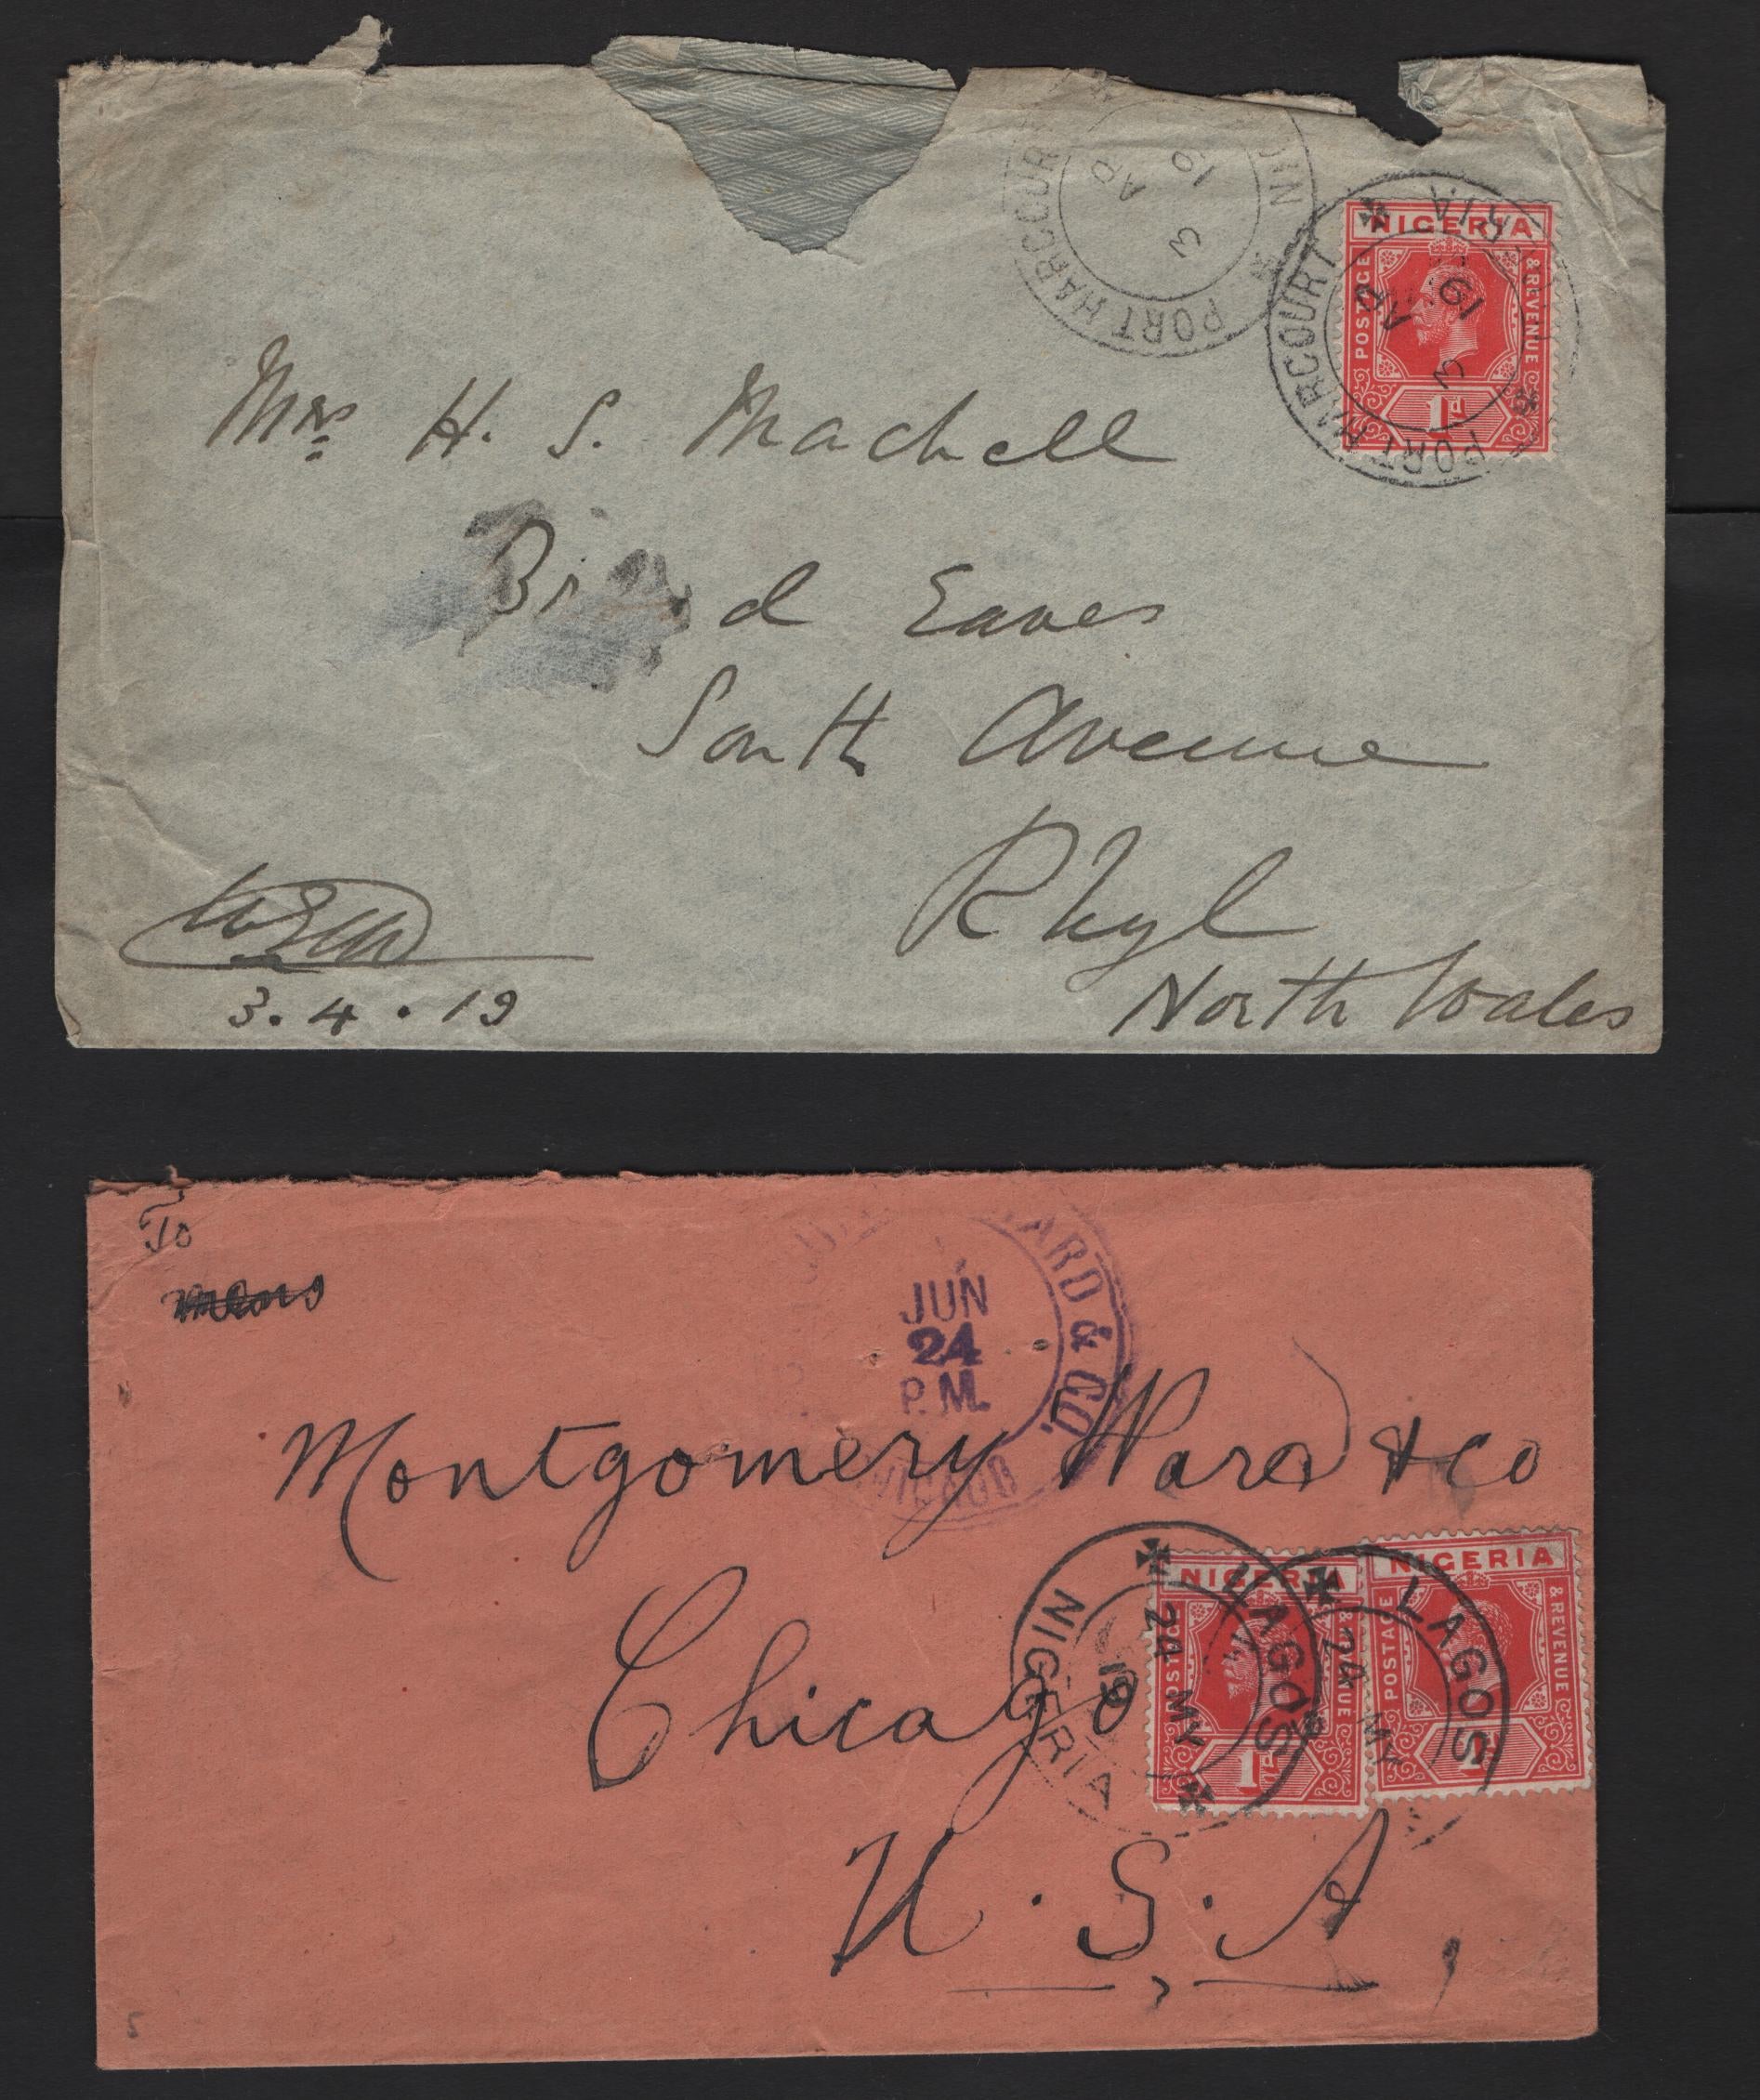 PORT HARCOURT
3 AP 19
NIGERIA
POSTAGE & REVENUE
1d
PORT HARCOURT
3 AP 19
Mrs H. S. Machell
Eaves
South Avenue
Rhyl
North Wales
3.4.19
To
WARD & CO.
JUN
24
P.M.
CHICAGO
Montgomery Ward & Co
Chicago
U.S.A.
NIGERIA
POSTAGE & REVENUE
1d
NIGERIA
POSTAGE & REVENUE
LAGOS
24 MY
19
NIGERIA
LAGOS
24 MY
5